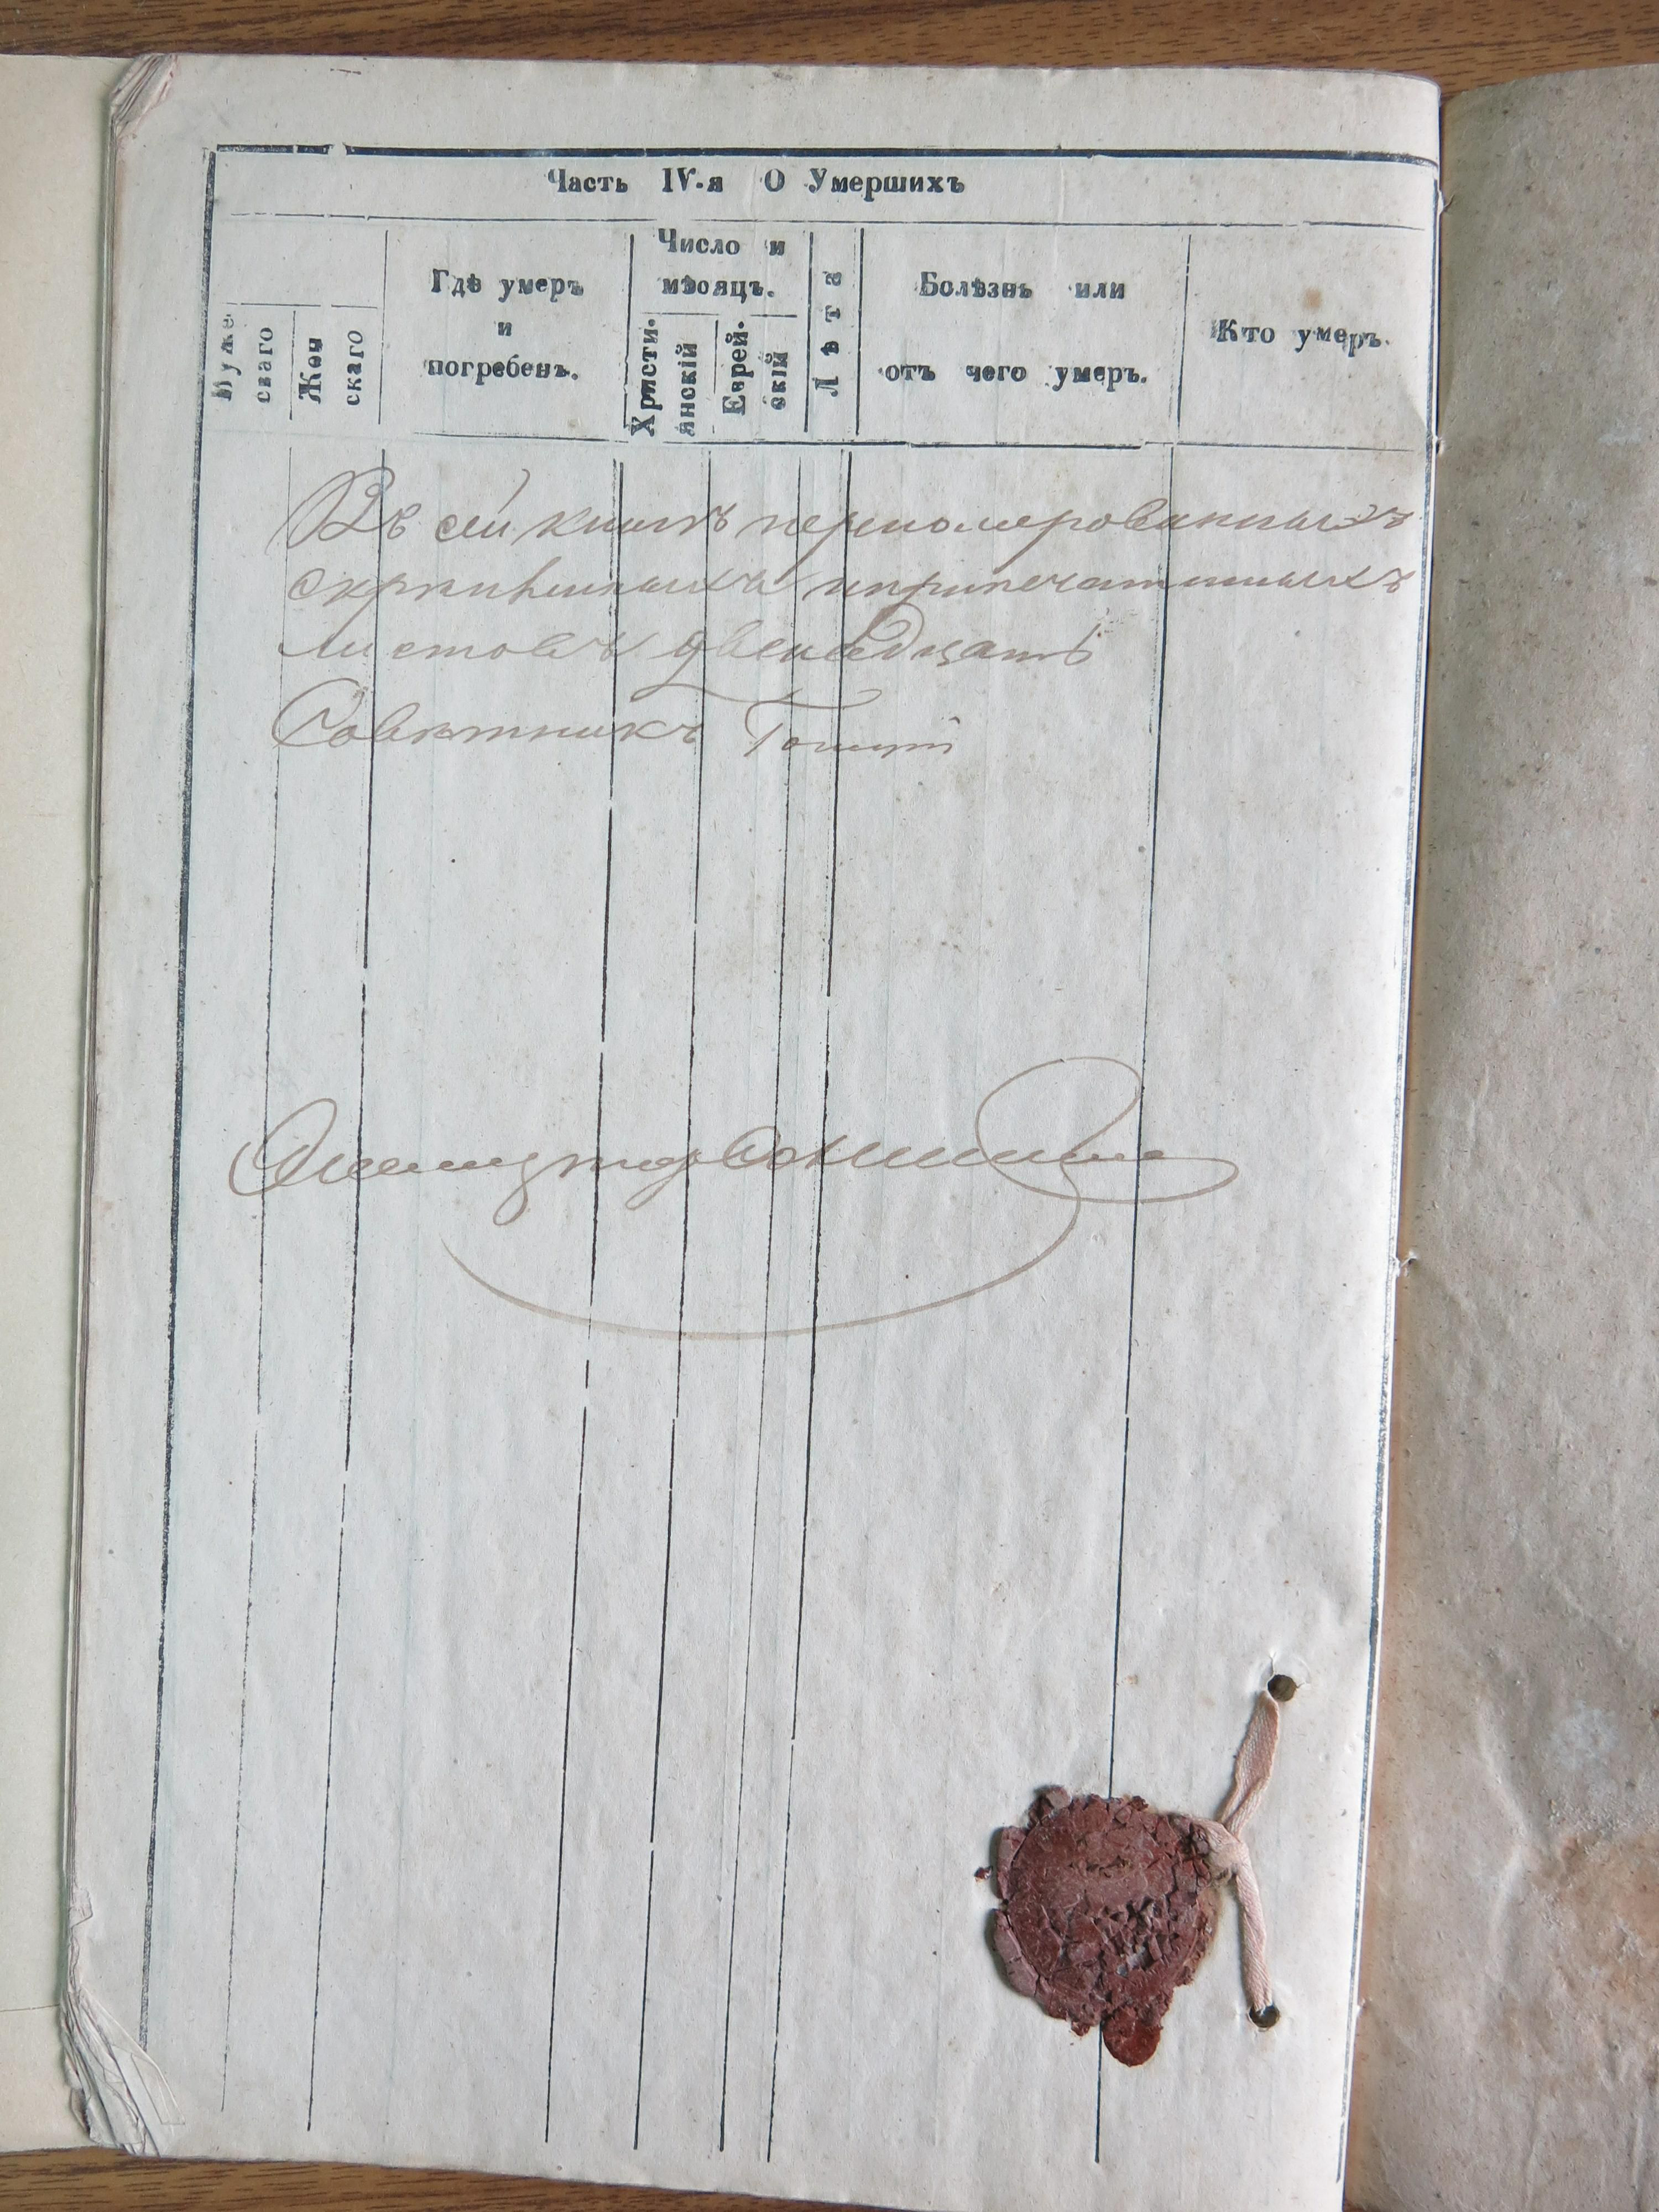 Часть IV-я О Умершихъ
Мужескаго
Женскаго
Где умеръ
и
погребенъ.
Число и
мѣсяцъ.
Христи-
янскій
Еврей-
скій
Лѣта
Болѣзнь или
отъ чего умеръ.
Кто умеръ.
Въ сей книгѣ перномерованныхъ
скрѣпленныхъ и припечатанныхъ
листовъ двенадцать
Совѣтникъ